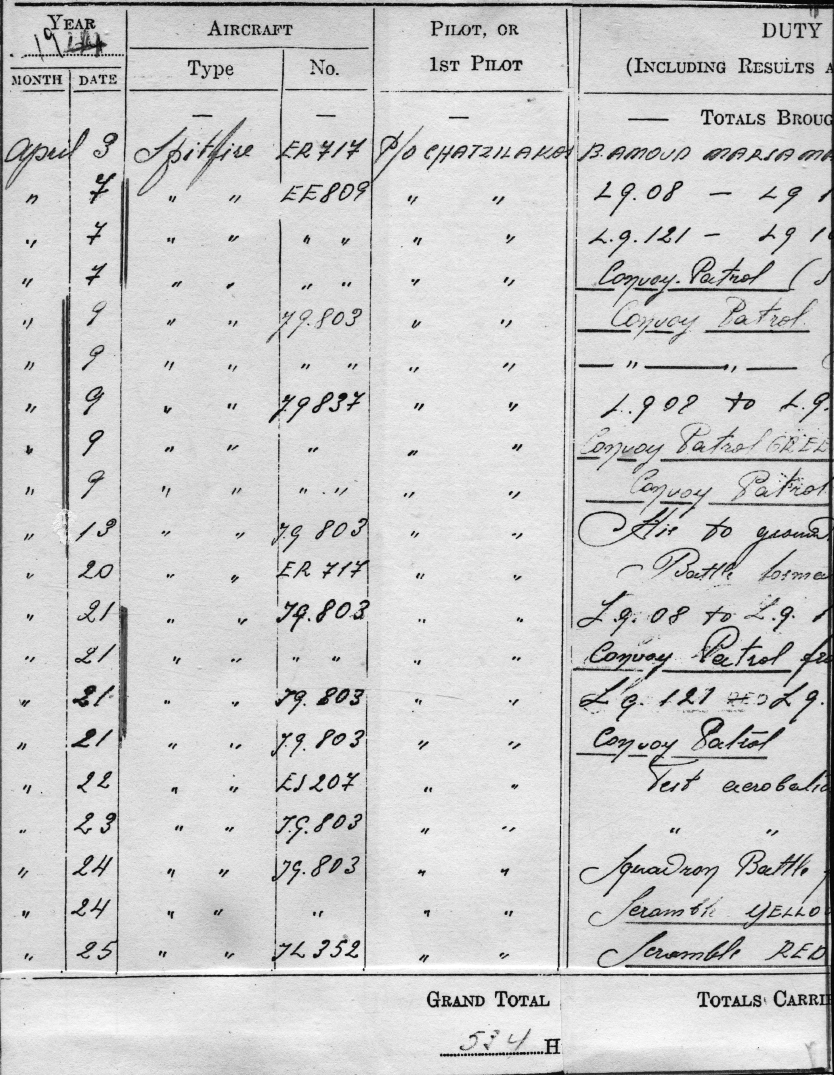 YEAR AIRCRAFT PILOT, OR DUTY
1944 1ST PILOT (INCLUDING RESULTS A
MONTH DATE Type No.
— — — — TOTALS BROUG
April 3 Spitfire ER717 P/O CHATZILAKOS B. AMOUD MARSA MA
" 7 " " EE809 " " L9.08 — L9 1
" 7 " " " " " " L.9.121 — L9 1
" 7 " " " " " " Convoy Patrol (S
" 9 " " J9.803 " " Convoy Patrol.
" 9 " " " " " " — " — " — (
" 9 " " J9837 " " L.908 to L.9.
" 9 " " " " " Convoy Patrol GREE
" 9 " " " " " " Convoy Patrol
" 13 " " J9 803 " " Air to ground
" 20 " " ER 717 " " Battle forma
" 21 " " J9.803 " " L.9.08 to L.9. 1
" 21 " " " " " " Convoy Patrol fro
" 21 " " J9.803 " " L9.121 L9.
" 21 " " J9.803 " " Convoy Patrol
" 22 " " EJ207 " " Test aerobatic
" 23 " " J9.803 " " " "
" 24 " " J9.803 " " Squadron Battle f
" 24 " " " " " Scramble YELLOW
" 25 " " JL352 " " Scramble RED
GRAND TOTAL TOTALS CARRIE
534 H